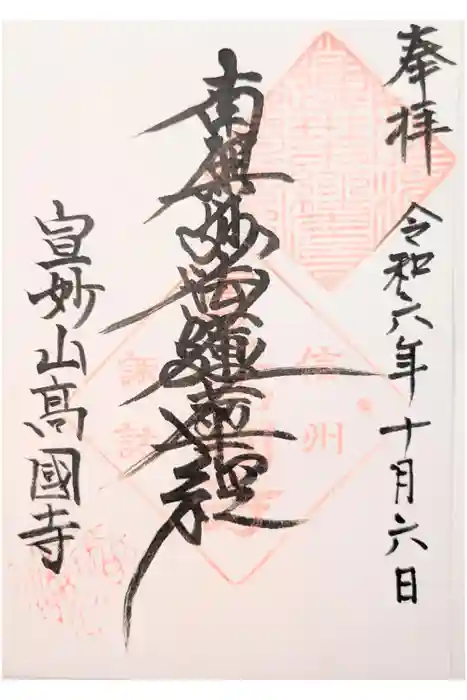 奉拝
令和六年十月六日
南無妙法蓮華経
信州
諏訪
宣妙山高國寺